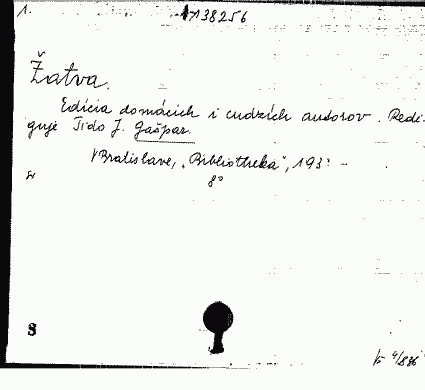 1.
138256
Žatva.
Edícia domácich i cudzích autorov. Redi-
guje Tido J. Gašpar.
V Bratislave, „Bibliotheka", 193 -
8°
S